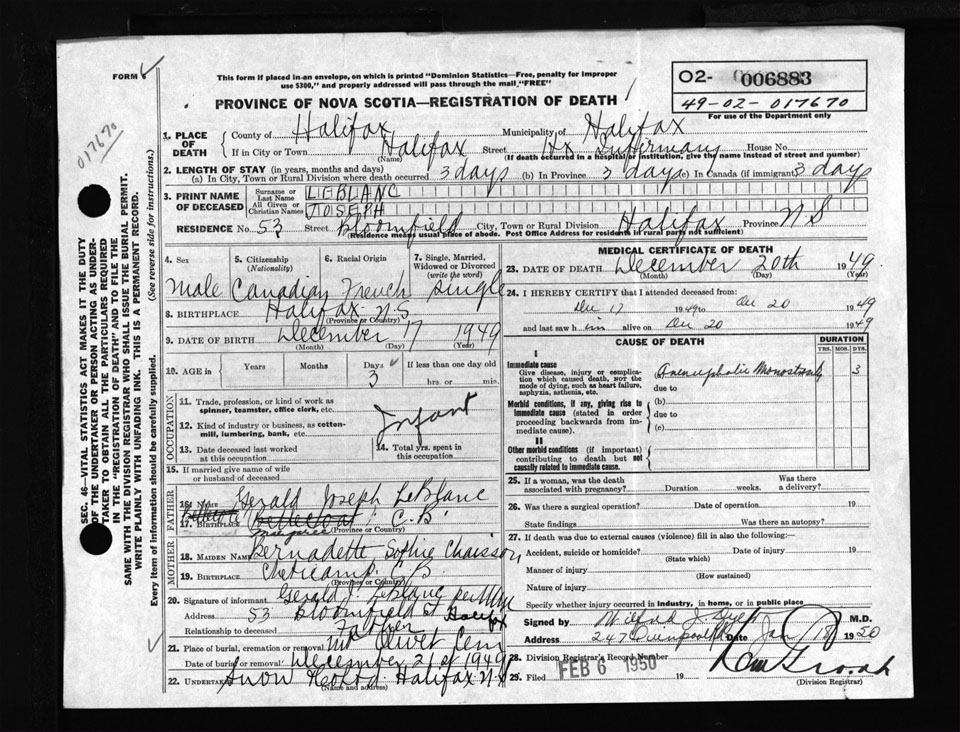 FORM 6
This form if placed in an envelope, on which is printed "Dominion Statistics—Free, penalty for improper
use $300," and properly addressed will pass through the mail "FREE"
O2- 006883
49-02-017670
For use of the Department only
PROVINCE OF NOVA SCOTIA—REGISTRATION OF DEATH
017670
SEC. 46—VITAL STATISTICS ACT MAKES IT THE DUTY
OF THE UNDERTAKER OR PERSON ACTING AS UNDER-
TAKER TO OBTAIN ALL THE PARTICULARS REQUIRED
IN THE "REGISTRATION OF DEATH" AND TO FILE THE
SAME WITH THE DIVISION REGISTRAR WHO SHALL ISSUE THE BURIAL PERMIT.
WRITE PLAINLY WITH UNFADING INK. THIS IS A PERMANENT RECORD.
Every item of Information should be carefully supplied. (See reverse side for instructions.)
1. PLACE OF DEATH
County of Halifax Municipality of Halifax
If in City or Town Halifax Street Hx Infirmary House No.
(Name) (If death occurred in a hospital or institution, give the name instead of street and number)
2. LENGTH OF STAY (in years, months and days)
(a) In City, Town or Rural Division where death occurred 3 days (b) In Province 3 days (c) In Canada (if immigrant) 3 days
3. PRINT NAME OF DECEASED
Surname or Last Name LEBLANC
All Given or Christian Names JOSEPH
RESIDENCE No. 53 Street Bloomfield City, Town or Rural Division Halifax Province N S
(Residence means usual place of abode. Post Office Address for residents in rural parts not sufficient)
4. Sex
5. Citizenship (Nationality)
6. Racial Origin
7. Single, Married, Widowed or Divorced (write the word)
Male Canadian French Single
8. BIRTHPLACE Halifax N.S
(Province or Country)
9. DATE OF BIRTH December 17 1949
(Month) (Day) (Year)
10. AGE in Years Months Days 3 If less than one day old hrs. or min.
OCCUPATION
11. Trade, profession, or kind of work as spinner, teamster, office clerk, etc.
12. Kind of industry or business, as cotton-mill, lumbering, bank, etc.
Infant
13. Date deceased last worked at this occupation
14. Total yrs. spent in this occupation
15. If married give name of wife or husband of deceased
FATHER
16. Name Gerald Joseph LeBlanc
17. BIRTHPLACE C.B.
(Province or Country)
MOTHER
18. MAIDEN NAME Bernadette Sophie Chaisson
19. BIRTHPLACE Cheticamp C B
(Province or Country)
20. Signature of informant Gerald J. LeBlanc
Address 53 Bloomfield St Halifax
Relationship to deceased Father
21. Place of burial, cremation or removal Mt Olivet Cem
Date of burial or removal December 21st 1949
22. UNDERTAKER Snow Halifax N S
(Name and address)
MEDICAL CERTIFICATE OF DEATH
23. DATE OF DEATH December 20th 1949
(Month) (Day) (Year)
24. I HEREBY CERTIFY that I attended deceased from:
Dec 17 1949 to Dec 20 1949
and last saw him alive on Dec 20 1949
CAUSE OF DEATH
DURATION
YRS. MOS. DYS.
I
Immediate cause
Give disease, injury or complication which caused death, NOT the mode of dying, such as heart failure, asphyxia, asthenia, etc.
(a) Anencephalic Monstrosity 3
due to
Morbid conditions, if any, giving rise to immediate cause (stated in order proceeding backwards from immediate cause).
(b)
due to
(c)
II
Other morbid conditions (if important) contributing to death but not causally related to immediate cause.
25. If a woman, was the death associated with pregnancy? Duration weeks. Was there a delivery?
26. Was there a surgical operation? Date of operation 19
State findings Was there an autopsy?
27. If death was due to external causes (violence) fill in also the following:—
Accident, suicide or homicide? Date of injury 19
(State which)
Manner of injury
(How sustained)
Nature of injury
Specify whether injury occurred in industry, in home, or in public place
Signed by Wilfred J. Dyer M.D.
Address 247 Date Jan 18 1950
28. Division Registrar's Record Number
29. Filed FEB 6 1950 19
(Division Registrar)